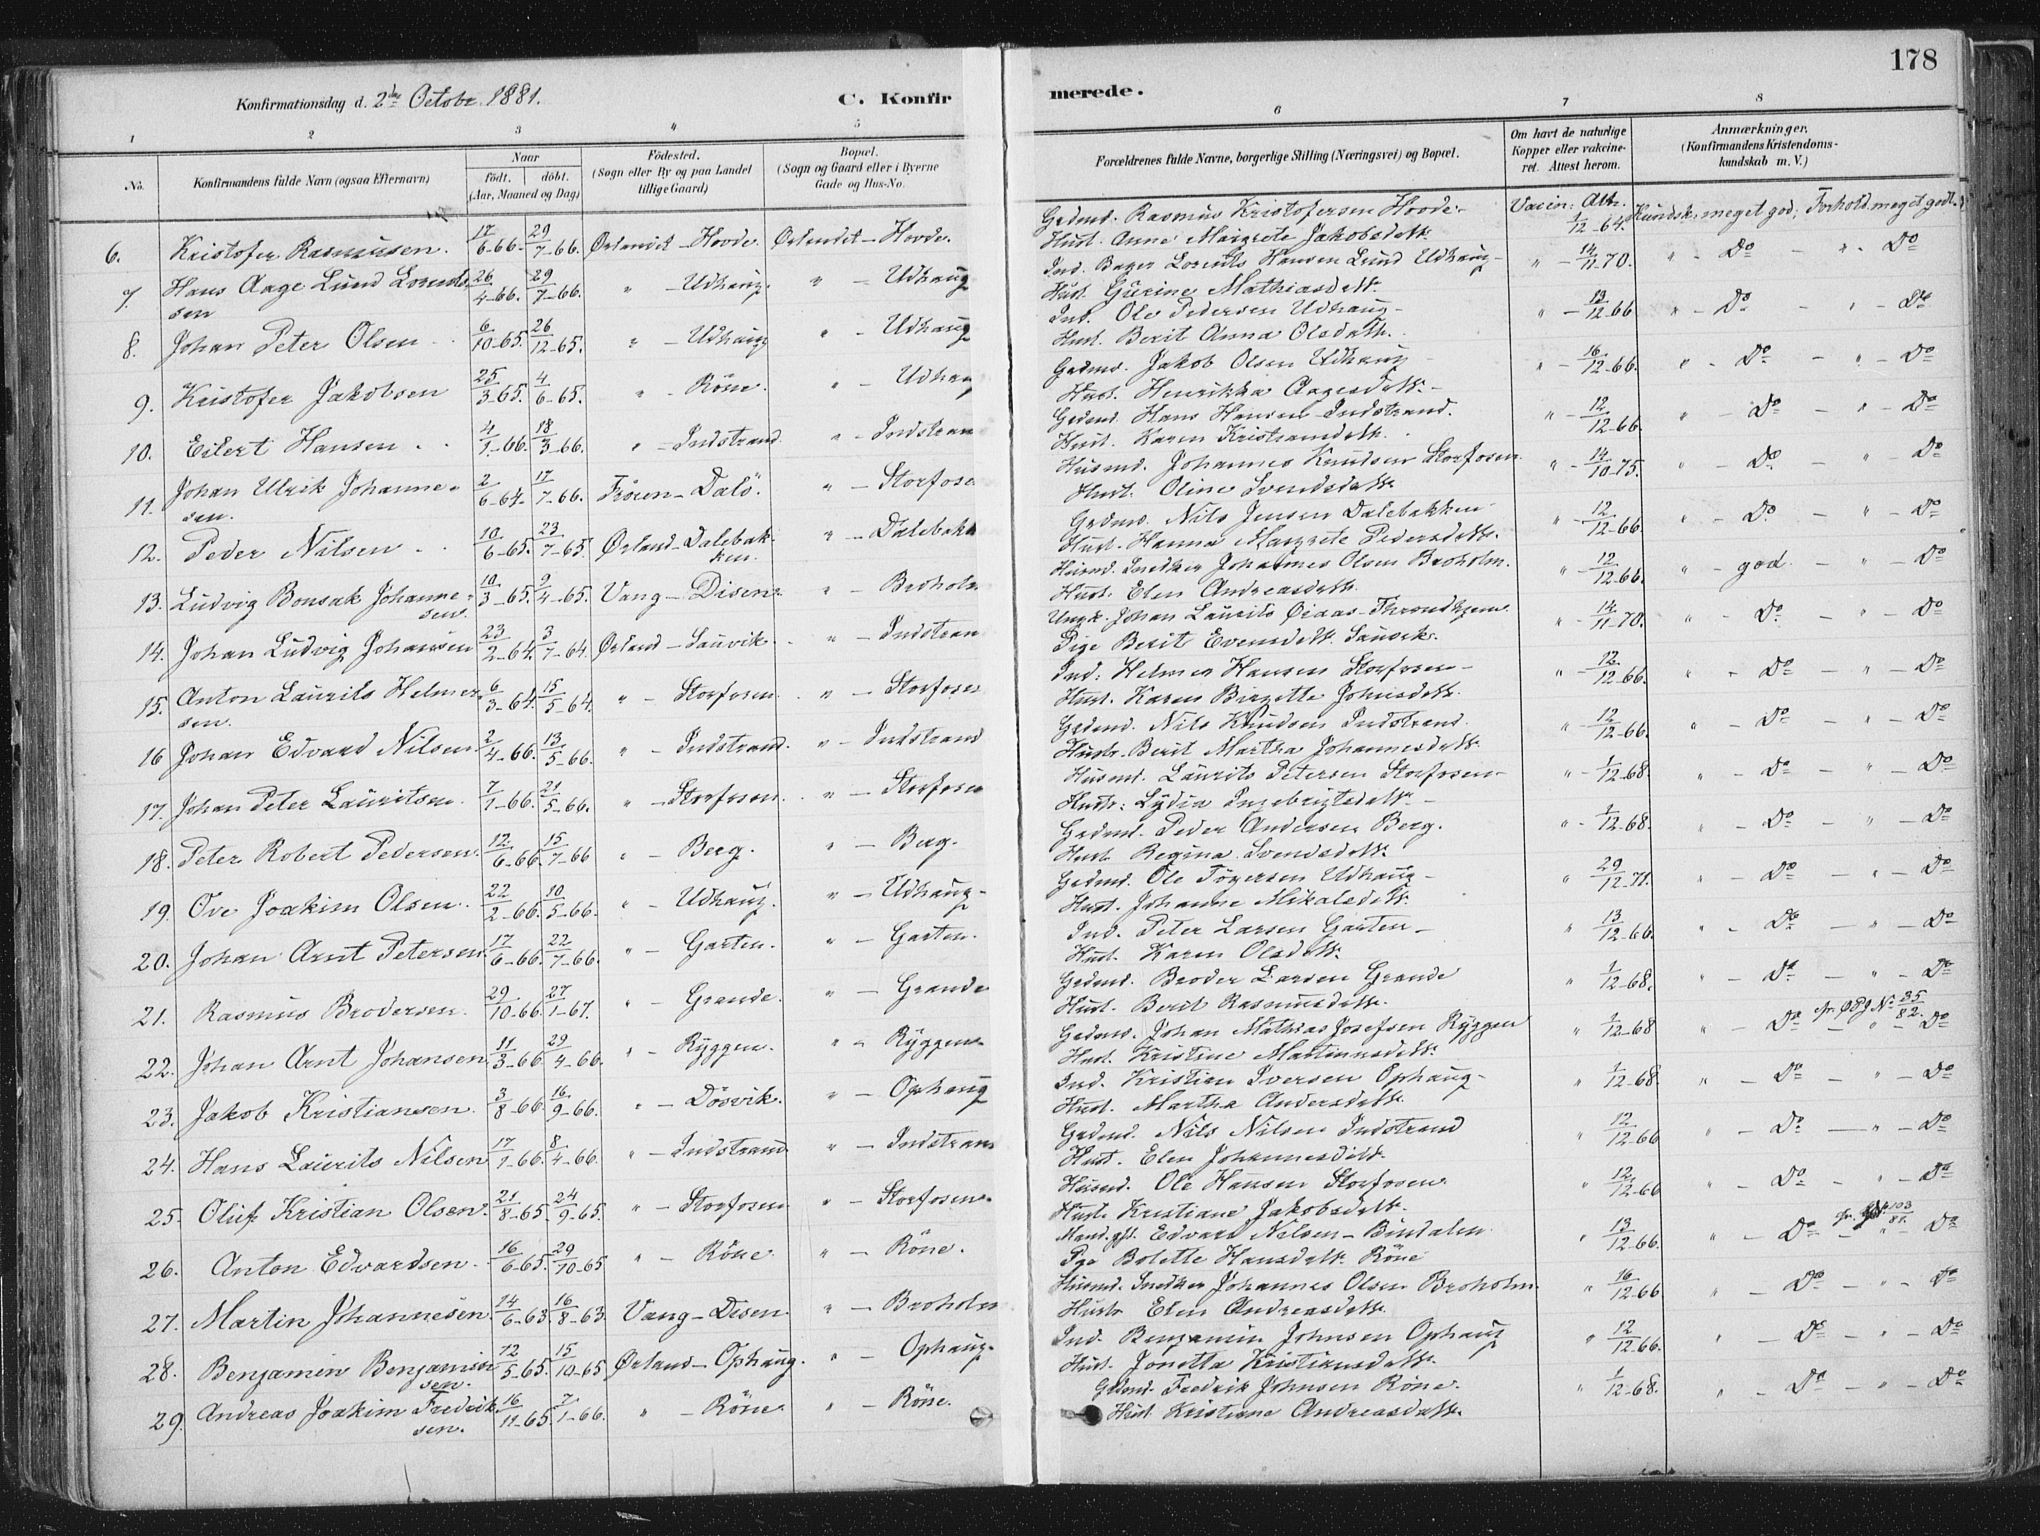 178
Konfirmationsdag d. 2den Octobr. 1881.
C. Konfirmerede.
1 2 3 4 5 6 7 8
No. Konfirmandens fulde Navn (ogsaa Efternavn) Naar født. døbt. (Aar, Maaned og Dag) Födested. (Sogn eller By og paa Landet tillige Gaard) Bopæl. (Sogn og Gaard eller i Byerne Gade og Hus-No. Forældrenes fulde Navne, borgerlige Stilling (Næringsvei) og Bopæl. Om havt de naturlige Kopper eller vakcineret. Attest herom. Anmærkninger. (Konfirmandens Kristendomskundskab m. V.)
6. Kristofer Rasmusen. 17/6-66. 29/7-66. Ørlandet - Hovde. Ørlandet - Hovde. Grdmd. Rasmus Kristofersen Hovde - Vaccin: Att. 1/12-64. Kundsk. meget god; Forhold meget godt.
Hust. Anne Margrete Jakobsdatt.
7 Hans Aage Lund Lorents- 26/4-66. 29/7-66. " - Udhaug. " - Udhaug Ind. Bager Lorents Hansen Lund Udhaug - " - 14/11-70. " - Do - " - Do
sen Hust. Gurine Mathiasdatt.
8. Johan Peter Olsen 6/10-65. 26/12-65. " - Udhaug " - Udhaug Ind. Ole Pedersen Udhaug - " - 13/12-66 " - Do - " - Do
Hust. Berit Anna Olsdatt.
9. Kristofer Jakobsen 25/3-65. 4/6-65. " - Röne. " - Udhaug Grdmd. Jakob Olsen Udhaug " - 16/12-66. " - Do - " - Do
Hust. Henrikka Aagesdatt. -
10. Eilert Hansen 4/1-66. 18/3-66. " - Indstrand " - Indstran Grdmd. Hans Hansen Indstrand. " - 12/12-66. " - Do - " - Do
Hust. Karen Kristiansdatt.
11. Johan Ulrik Johanne- 2/6-64. 17/7-66. Fröien - Dalö. " - Storfosen Husmd. Johannes Knudsen Storfosen " - 14/10-75. " - Do - " - Do
sen. Hust. Oline Svendsdatt.
12. Peder Nilsen 10/6-65. 23/7-65. Ørland - Dalebakken. " - Dalebakk Grdmd. Nils Jensen Dalebakken " - 12/12-66. " - Do - " - Do
Hust. Hanna Margrete Pedersdatt.
13. Ludvig Bonsak Johanne- 10/3-65. 9/4-65. Vang - Disen. " - Broholm Husmd. Snedker Johannes Olsen Broholm. " - 12/12-66. " - god - " - Do
sen. Hust. Elen Andreasdatt.
14. Johan Ludvig Johansen 23/2-64. 3/7-64. Ørland - Sauvik. " - Indstran Ungk. Johan Laurits Öiaas - Throndhjem " - 14/11-70. " - Do - " - Do
Pige Berit Evensdatt. Sauvik.
15. Anton Laurits Helmer- 6/3-64. 15/5-64. " - Storfosen. " - Storfosen Ind. Helmer Hansen Storfosen - " - 12/12-66. " - Do - " - Do
sen. Hust. Karen Birgitte Johnsdatt.
16 Johan Edvard Nilsen 2/4-66. 13/5-66. " - Indstrand. " - Indstrand Grdmd. Nils Knudsen Indstrand. " - 12/12-66. " - Do - " - Do
Hustr. Berit Martha Johannesdatt.
17. Johan Peter Lauritsen. 7/1-66. 21/5-66. " - Storfosen. " - Storfosen Husmd. Laurits Petersen Storfosen - " - 1/12-68. " - Do - " - Do
Hustr: Lydia Ingebrigtsdatt. -
18. Peter Robert Pedersen. 12/6-66. 15/7-66 " - Berg. " - Berg. Grdmd. Peder Andersen Berg. " - 1/12-68. " - Do - " - Do
Hust. Regina Svendsdatt.
19. Ove Joakim Olsen. 22/2-66. 10/5-66. " - Udhaug. " - Udhaug. Grdmd. Ole Tögersen Udhaug - " 29/12-71. " - Do - " - Do
Hust. Johanne Mikalsdatt.
20. Johan Arnt Petersen. 17/6-66. 22/7-66. " - Garten. " - Garten. Ind. Peter Larsen Garten - " 13/12-66. " - Do - " - Do
Hust. Karen Olsdatt.
21. Rasmus Brodersen. 29/10-66. 27/1-67. " - Grande. " - Grande Grdmd. Broder Larsen Grande " 1/12-68. " - Do - " - Do
Hust. Berit Rasmusdatt.
22. Johan Arnt Johansen. 11/3-66. 29/4-66. " - Ryggen. " - Ryggen. Grdmd. Johan Mathias Josefsen Ryggen " 1/12-68 " - Do - " - Do
Hust. Kristine Martinusdatt.
23. Jakob Kristiansen. 3/8-66. 16/9-66. " - Dösvik. " - Ophaug Ind. Kristian Iversen Ophaug - " 1/12-68. " - Do - " - Do
Hust. Martha Andersdatt.
24. Hans Laurits Nilsen 17/1-66. 8/4-66. " - Indstrand " - Indstran Grdmd. Nils Nilsen Indstrand " 12/12-66 " - Do - " - Do
Hust. Elen Johannesdatt.
25. Oluf Kristian Olsen. 21/8-65. 24/9-65. " - Storfosen. " - Storfosen. Husmd. Ole Hansen Storfosen. " 12/12-66 " - Do - " - Do
Hust. Kristiane Jakobsdatt.
26. Anton Edvardsen. 16/6-65. 29/10-65 " - Röne. " - Röne. Mand. gft. Edvard Nilsen - Bindalen " 13/12-66. " - Do - " - Do
Pge Bolette Hansdatt. Röne
27. Martin Johannesen. 14/6-63. 16/8-63 Vang - Disen. " - Broholm Husmd. Snedker Johannes Olsen Broholm. " 16/12-66 " - Do - " - Do
Hustr Elen Andreasdatt.
28. Benjamin Benjamin- 12/5-65. 15/10-65 Ørland - Ophaug. " - Ophaug. Ind. Benjamin Johnsen Ophaug " 12/12-66. " - Do - " - Do
sen. Hust. Jonetta Kristiansdatt.
29. Andreas Joakim Fredrik- 16/11-65. 7/1-66. " - Röne. " - Röne. Grdmd. Fredrik Johnsen Röne. " 1/12-68. " - Do - " - Do
sen. Hust. Kristiane Andreasdatt.